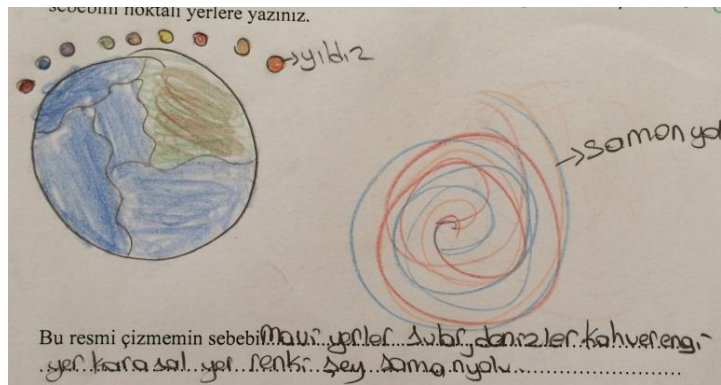 sebebini noktalı yerlere yazınız.
→yıldız
→samanyol
Bu resmi çizmemin sebebi mavi yerler sular, denizler kahverengi
yer karasal yer renkli şey samanyolu